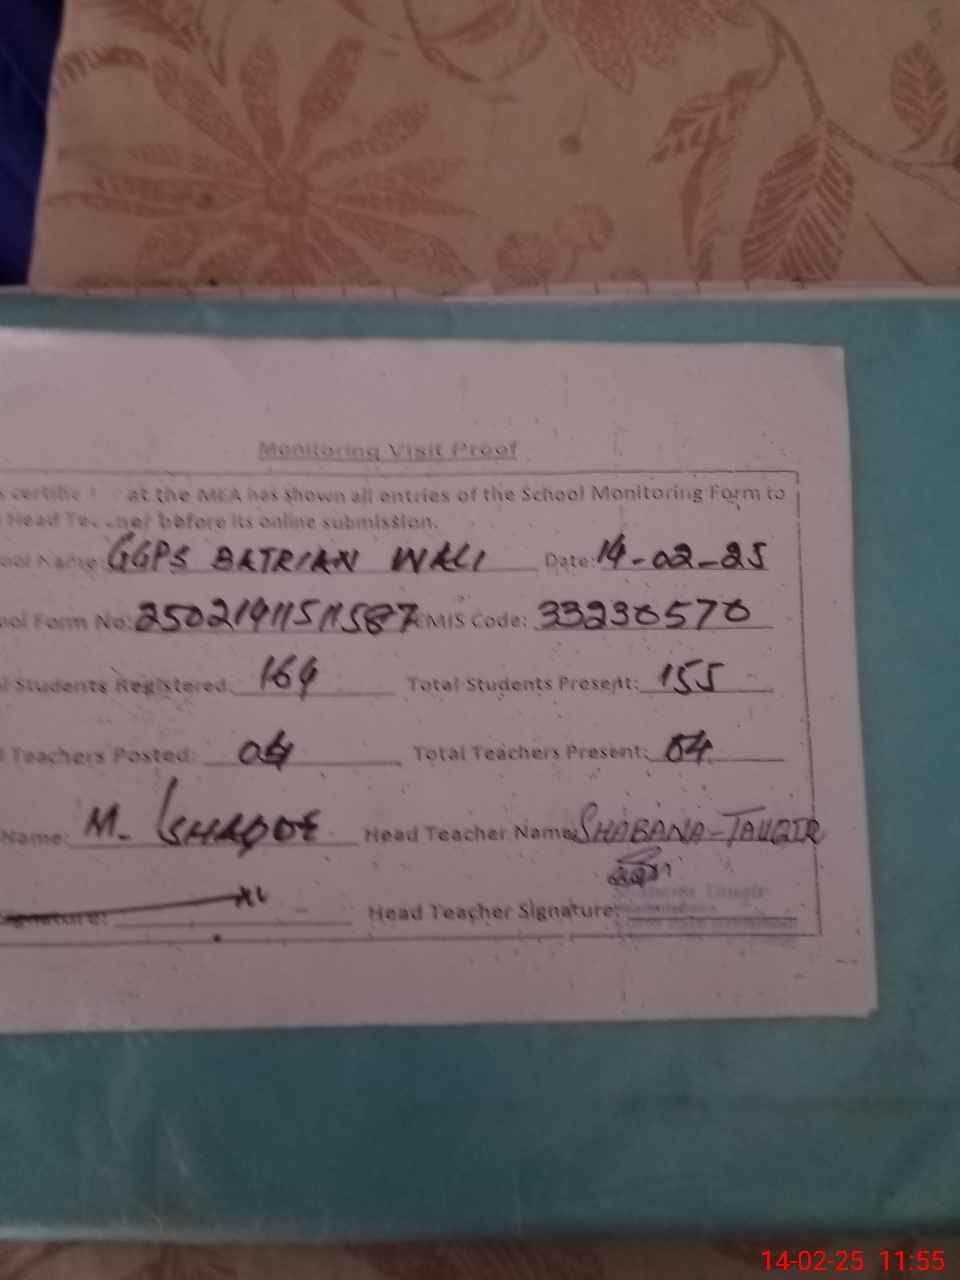 Monitoring Visit Proof
at the MEA has shown all entries of the School Monitoring Form to
Head before its online submission.
ool Name GGPS BATRIAN WALI Date: 14-02-25
ool Form No: 25021911511587 EMIS Code: 33230570
l Students Registered: 164 Total Students Present: 155
l Teachers Posted: 04 Total Teachers Present: 04
Name: M. ISHAQUE Head Teacher Name SHABANA-TAUQIR
Signature: Head Teacher Signature:
14-02-25 11:55